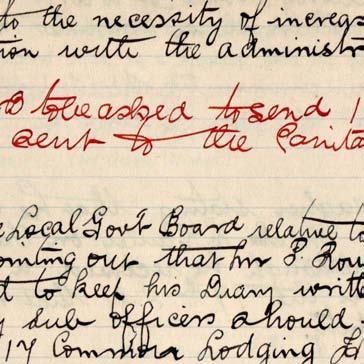 to the necessity of increas
ion with the administr
to be asked to send 1
sent to the Sanita
Local Gov't Board relative to
ointing out that Mr P. Rou
d to keep his Diary writt
y sub officers should
17 Common Lodging H